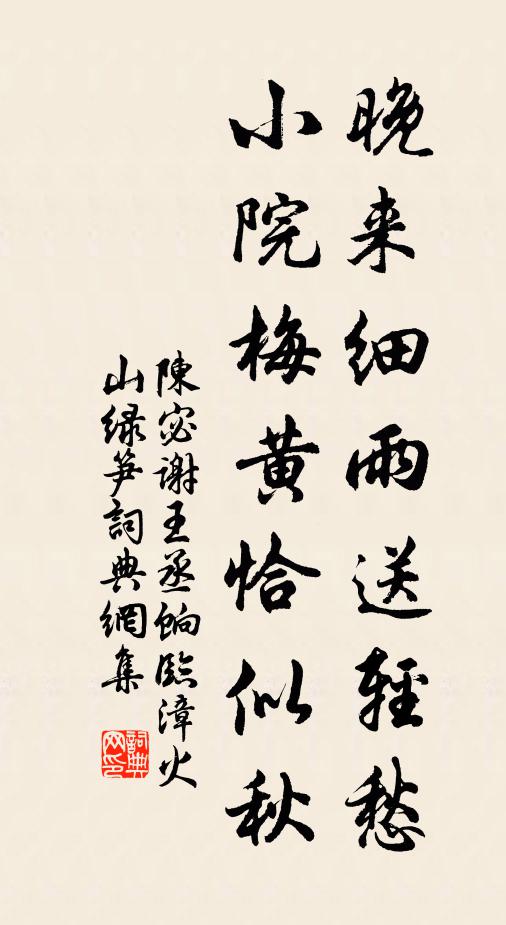 晚来细雨送輕愁
小院梅黄恰似秋
陳宓谢王丞餉臨漳火
山绿笋詞典網集
詞典
网印